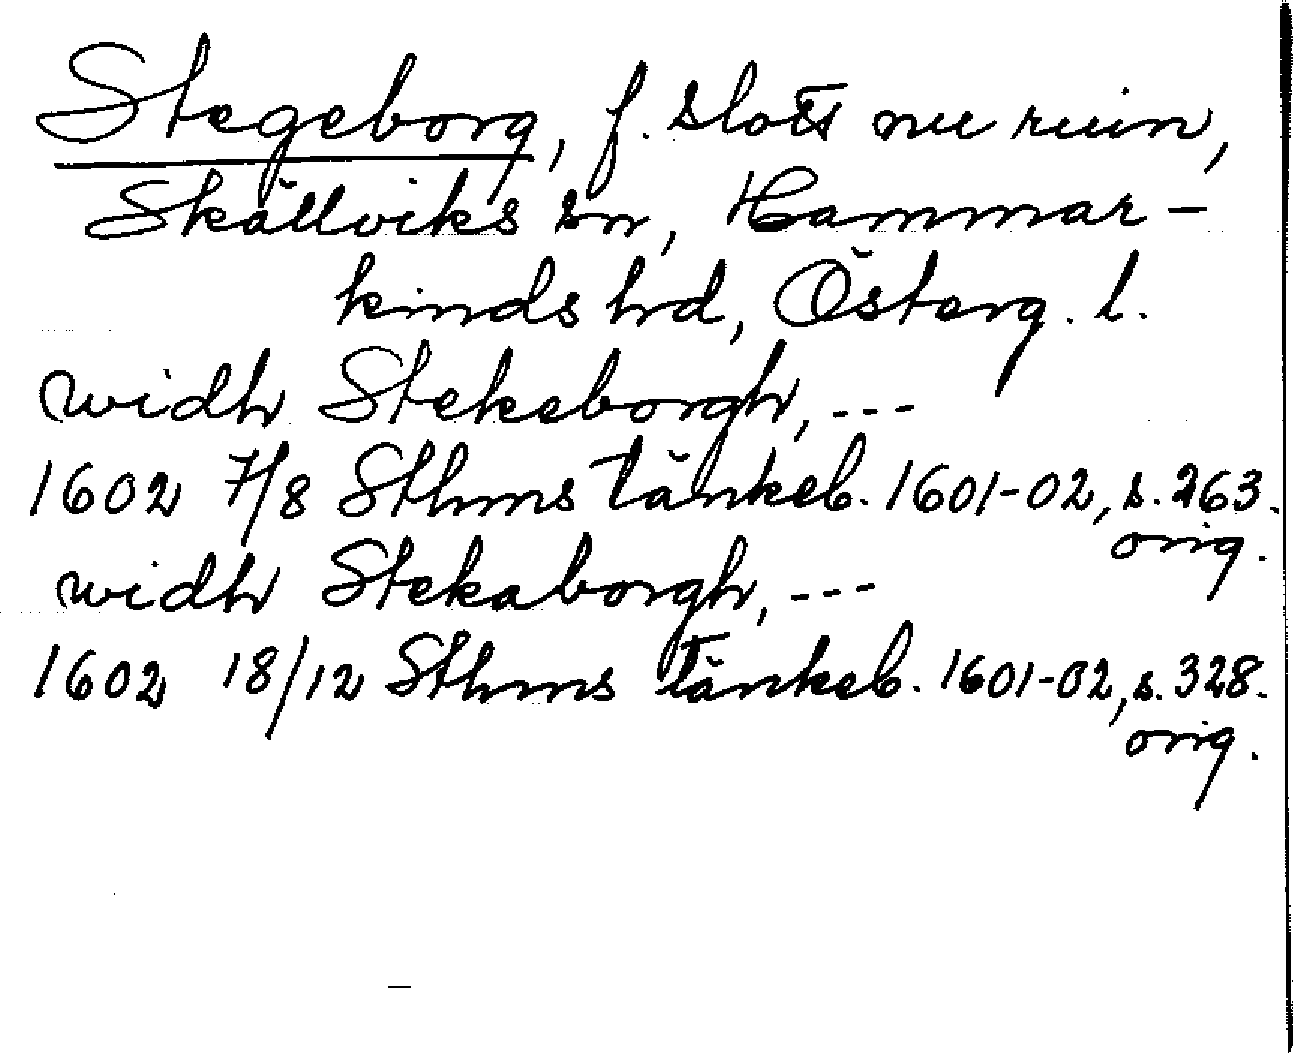 Stegeborg, f. slott nu ruin,
Skällviks sn, Hammar-
kinds hrd, Österg. l.
widh Stekeborgh, ---
1602 7/8 Sthms tänkeb. 1601-02, s. 263.
orig.
widh Stekaborgh, ---
1602 18/12 Sthms tänkeb. 1601-02, s. 328.
orig.